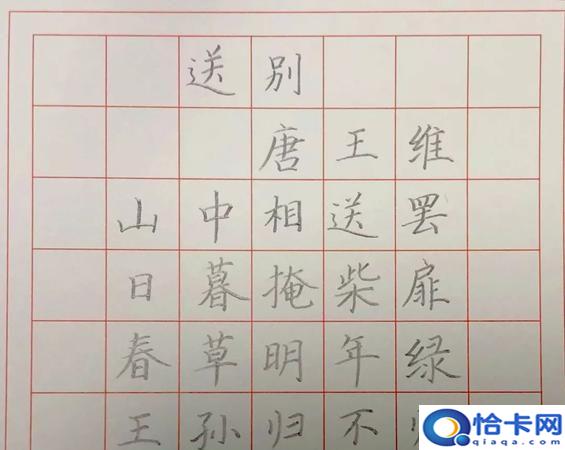 送别
唐王维
山中相送罢
日暮掩柴扉
春草明年绿
王孙归不
恰卡网
qiaqa.com